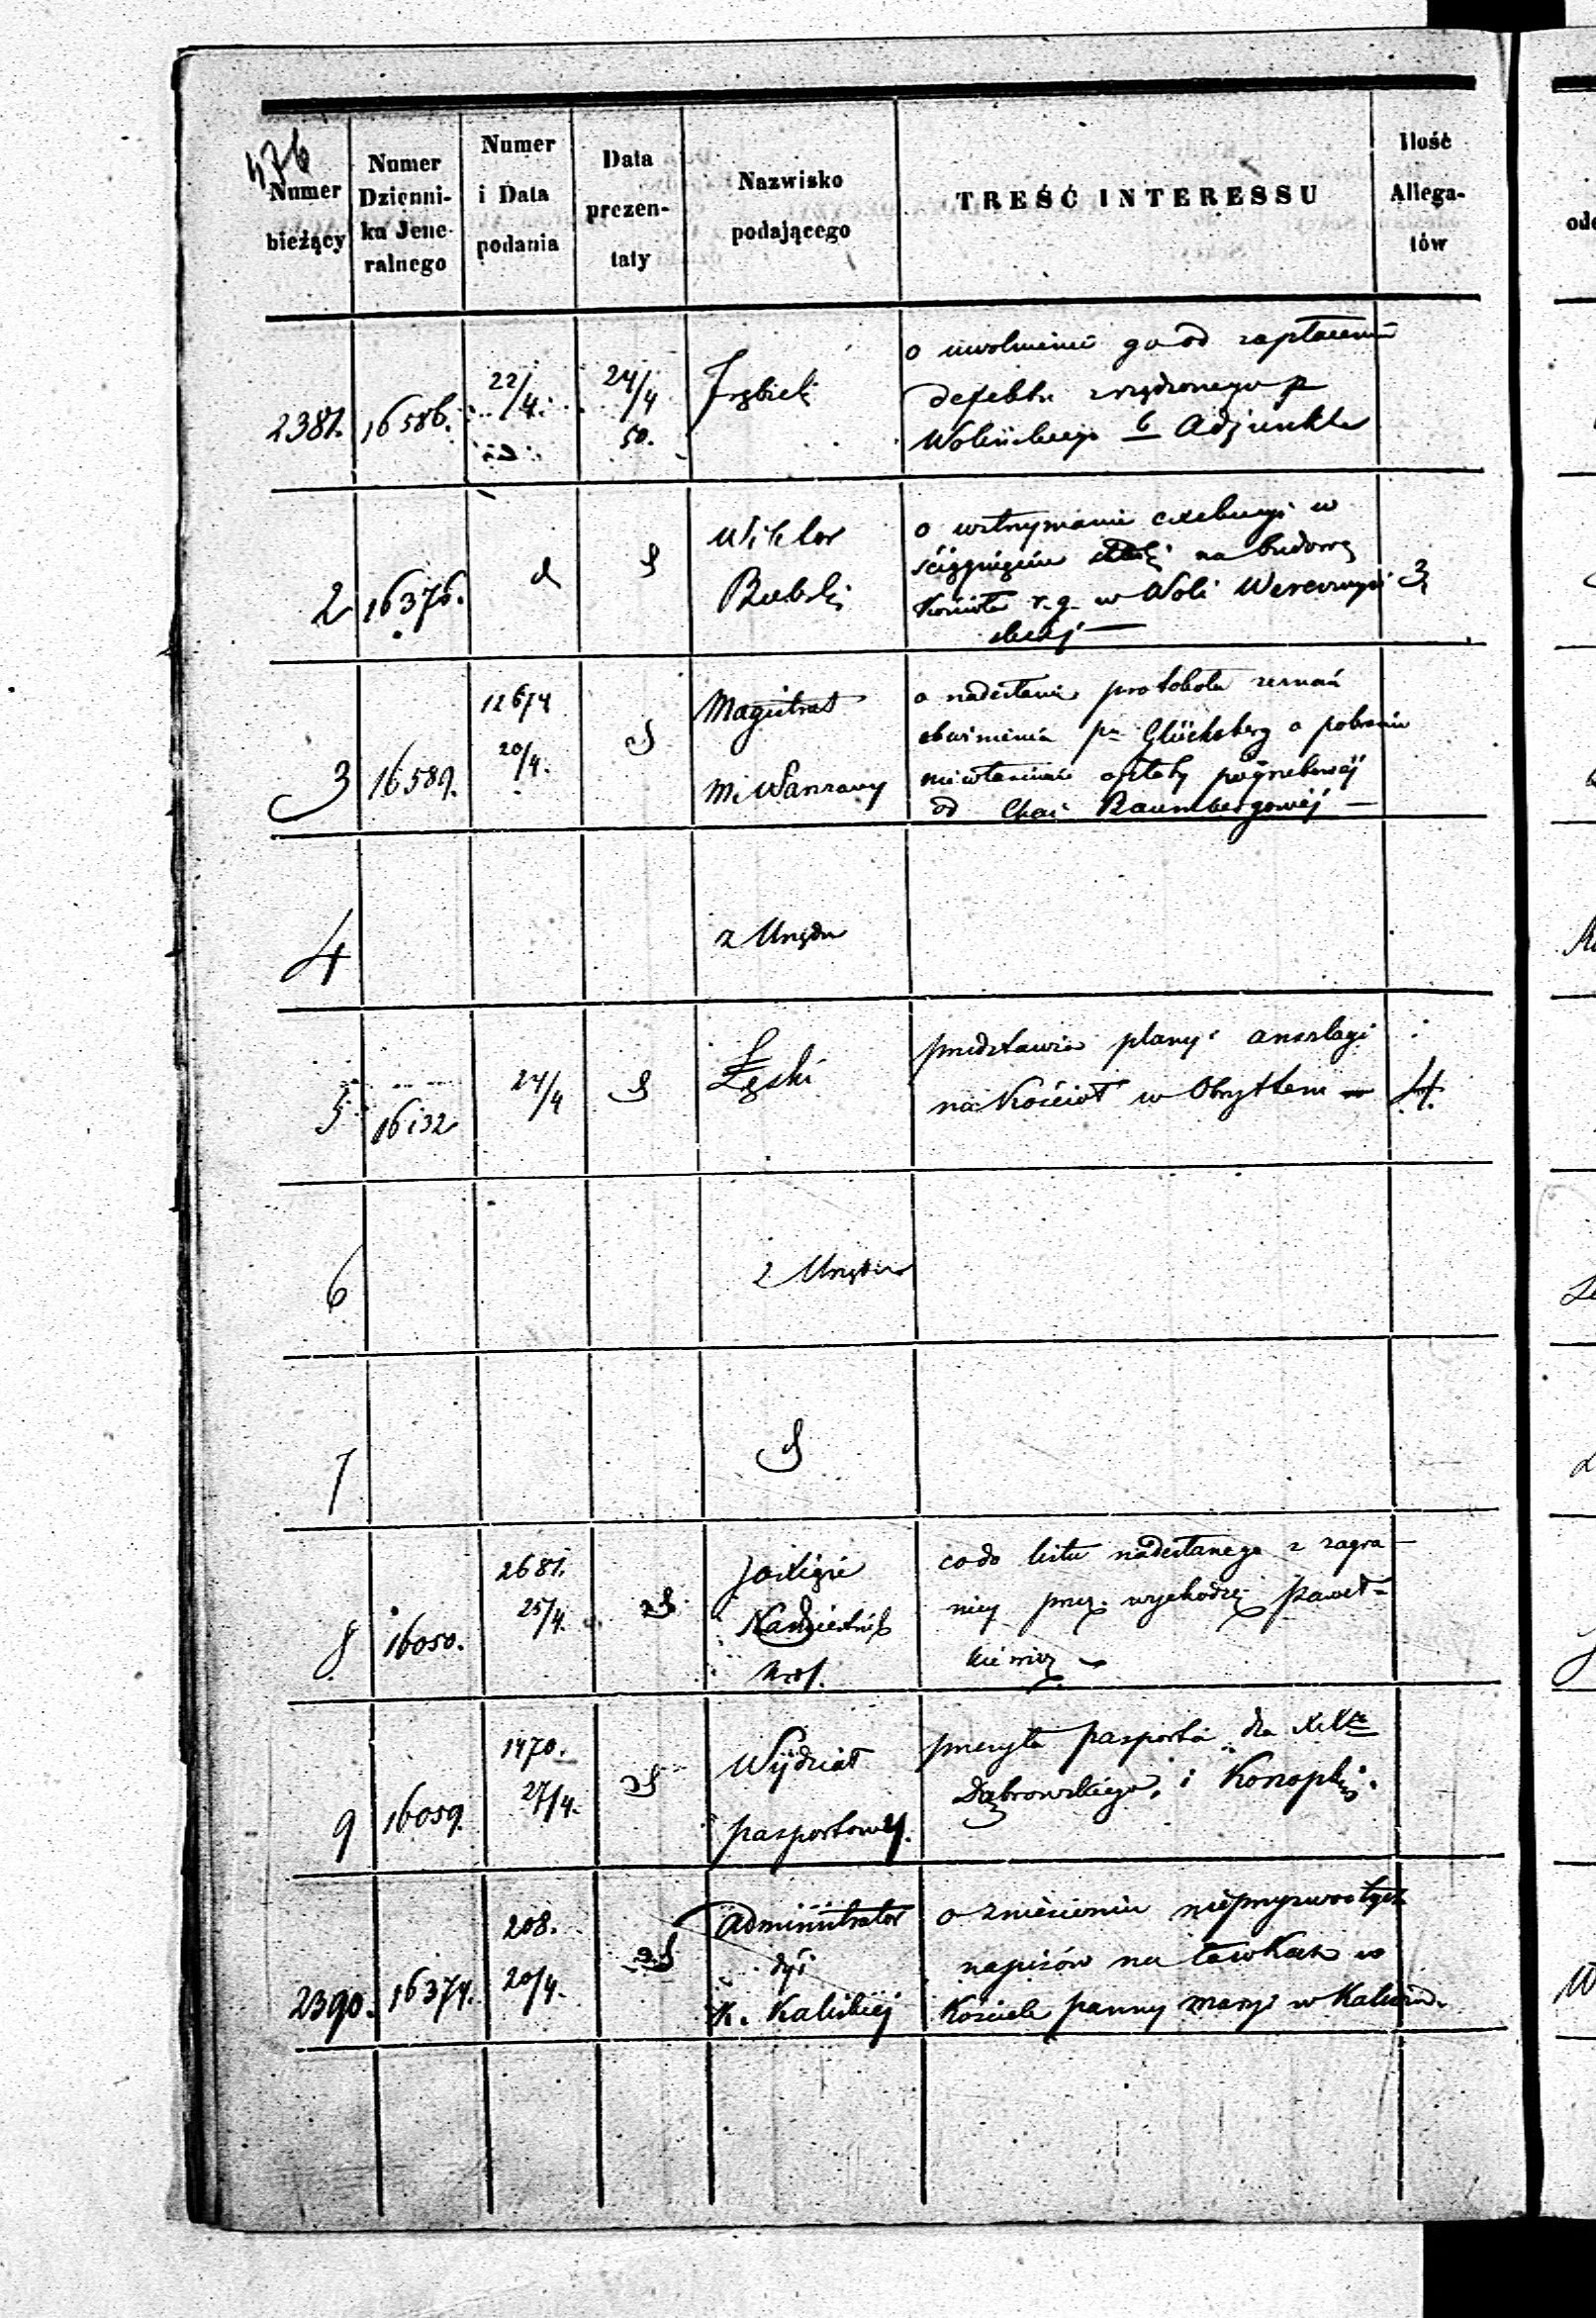 476
Numer bieżący
Numer Dzienni- ka Jene- ralnego
Numer i Data podania
Data prezen- taty
Nazwisko podającego
TREŚĆ INTERESSU
Ilość Allega- tów
2381. 16586. 22/4. 24/4 50.
o uwolnienie go od zapłacenia
defektu zrządzonego p
Wolińskiego b Adjunkta
2 16376. d d Wiktor 3
o wstrzymanie exekucyi w
ściągnięciu na budowę
Kościoła r. g. w Woli
3 16589. 12674 20/4. d Magistrat
m. Warszawy
o nadesłanie protokołu zeznań
obwinienia pr Glücksberg o pobranie
niewłaściwie opłaty pogrzebowéj
od Chai Baumbergowéj —
4 z Urzędu
5 16132 24/4 d Łęski 4.
przedstawia plany i anszlagi
na Kościół w Obrytem —
6 z Urzędu
7 d
8 16050. 2681. 25/4. d
Namiestnik
Król.
co do listu nadesłanego z zagra-
nicy przez wychodzcę Paweł-
kiewicz
9 16059. 1470. 27/4. d Wydział
pasportowy.
przesyła pasporta dla
Dąbrowskiego, i Konopki.
2390. 16374. 208. 20/4. d Administrator
dyi
K. Kaliskiej
o zniesieniu nieprzyzwoitych
napisów na ławkach w
Kościele panny maryi w Kaliszu.